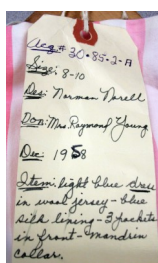 Acq# 30-85-2-A
Size: 8-10
Des: Norman Norell
Don: Mrs. Raymond Young
Dec: 1958
Item: light blue dress
in wool jersey - blue
silk lining - 3 pockets
in front - mandrin
collar.